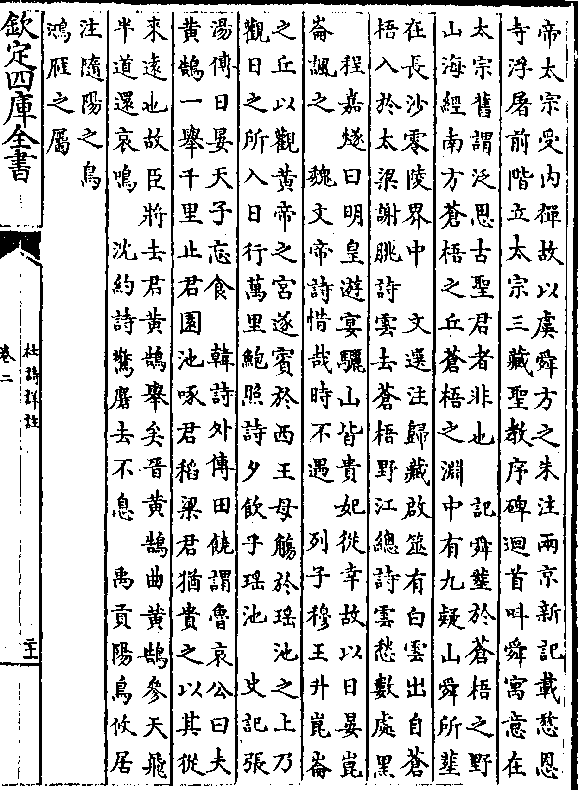 帝太宗受内禪故以虞舜方之朱注兩京新記載慈恩
寺浮屠前階立太宗三藏聖教序碑迴首叫舜寓意在
太宗舊謂泛思古聖君者非也　記舜塟於蒼梧之野
山海經南方蒼梧之丘蒼梧之淵中有九疑山舜所塟
在長沙零陵界中　文選注歸藏啟筮有白雲出自蒼
梧入於太梁謝朓詩雲去蒼梧野江總詩雲愁數處黑
　程嘉燧曰明皇遊宴驪山皆貴妃從幸故以日晏崑
崙諷之　魏文帝詩惜哉時不遇　列子穆王升崑崙
之丘以觀黃帝之宮遂賓於西王母觴於瑶池之上乃
觀日之所入日行萬里鮑照詩夕飲乎瑶池　史記張
湯傳日晏天子忘食　韓詩外傳田饒謂魯哀公曰夫
黃鵠一舉千里止君園池啄君稻粱君猶貴之以其從
來遠也故臣將去君黃鵠舉矣晋黃鵠曲黃鵠參天飛
半道還哀鳴　沈約詩驚麏去不息　禹貢陽鳥攸居
注隨陽之鳥
鴻雁之屬
欽定四庫全書
杜詩詳註
卷二
二十